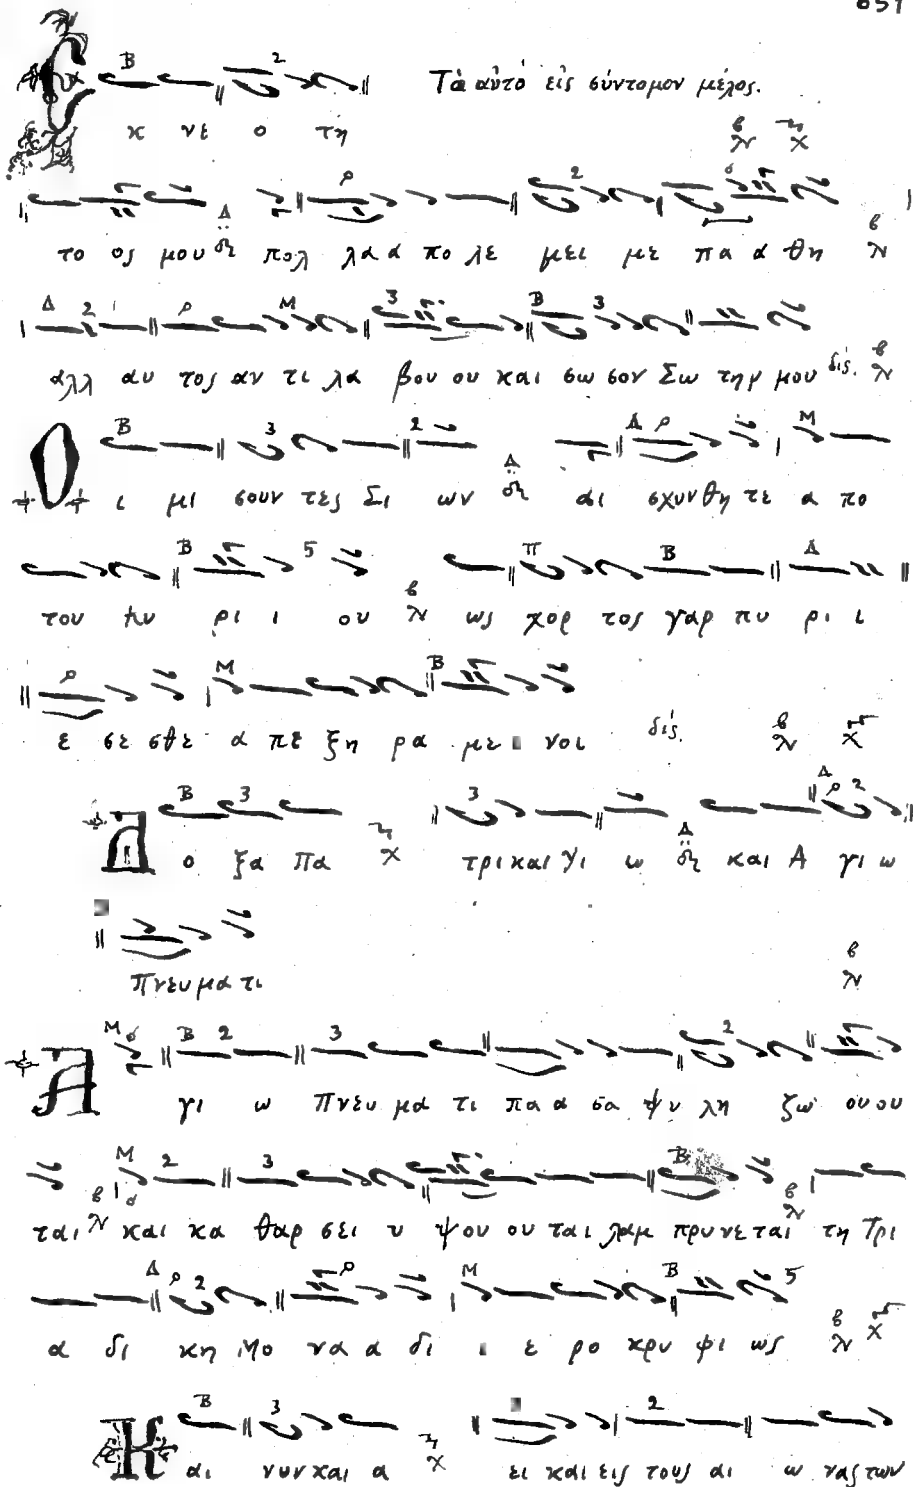 651
Τὰ αὐτὸ εἰς σύντομον μέλος.
Ε κ νε ο τη
το ος μου πολ λα α πο λε μει με πα α θη
αλλ αυ τος αν τι λα βου ου και σω σον Σω τηρ μου δίς.
Ο ι μι σουν τες Σι ων αι σχυνθη τε α πο
του Κυ ρι ι ου ως χορ τος γαρ πυ ρι ι
ε σε σθε α πε ξη ρα με νοι δίς.
Δ ο ξα Πα τρι και Υι ω και Α γι ω
Πνευ μα τι
Α γι ω Πνευ μα τι πα α σα ψυ χη ζω ου ου
ται και κα θαρ σει υ ψου ου ται λαμ πρυνε ται τη Τρι
α δι κη Μο να α δι ι ε ρο κρυ φι ως
Κ αι νυν και α ει και εις τους αι ω νας των